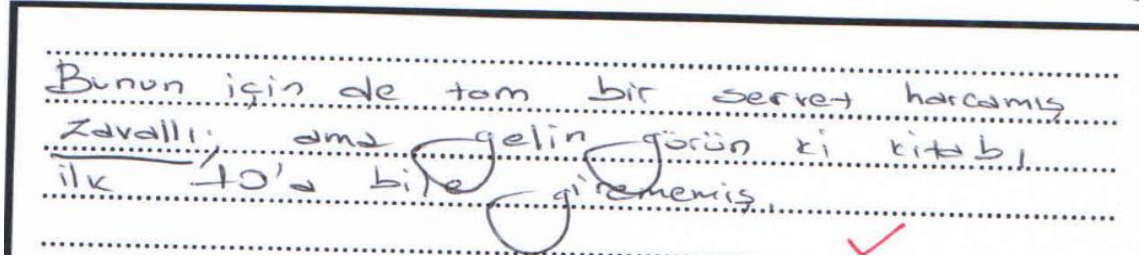 Bunun için de tam bir servet harcamış
zavallı; ama gelin görün ki kitabı
ilk 10'a bile girememiş.